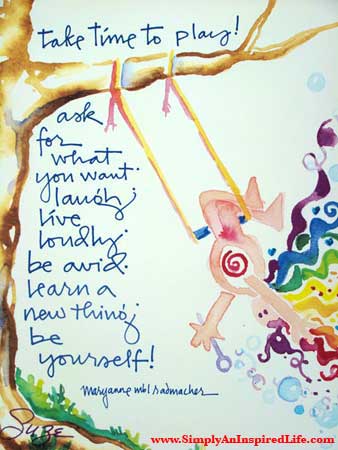 take time to play!
ask
for
what
you want.
laugh;
live
loudly.
be avid.
learn a
new thing;
be
yourself!
maryanne mbl radmacher
Suze
www.SimplyAnInspiredLife.com